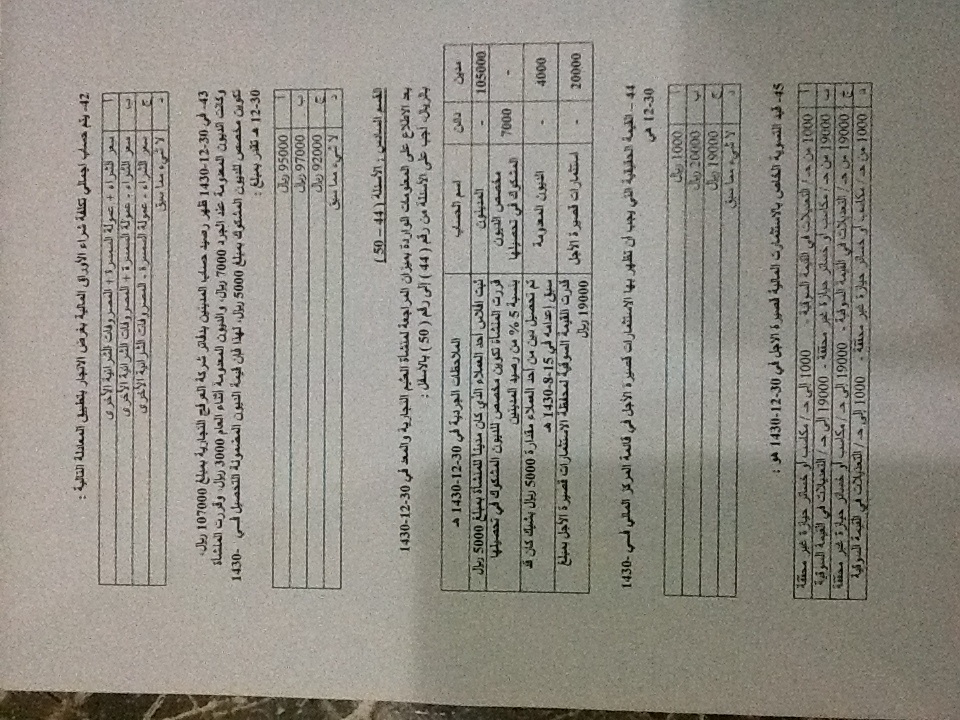 42- يتم حساب اجمالي تكلفة شراء الأوراق المالية بغرض الاتجار بتطبيق المعادلة التالية :
أ سعر الشراء + عمولة السمسرة + المصروفات الشرائية الأخرى
ب سعر الشراء - عمولة السمسرة + المصروفات الشرائية الأخرى
ج سعر الشراء + عمولة السمسرة - المصروفات الشرائية الأخرى
د لا شيء مما سبق
43- في 30-12-1430 ظهر رصيد حساب المدينين بدفاتر شركة العرفج التجارية بمبلغ 107000 ريال،
وكانت الديون المعدومة عند الجرد 7000 ريال، والديون المعدومة اثناء العام 3000 ريال وقررت المنشاة
تكوين مخصص للديون المشكوك بمبلغ 5000 ريال، لهذا فإن قيمة الديون المضمونة التحصيل في 1430-
12-30 هـ تقدر بمبلغ :
أ 95000 ريال
ب 97000 ريال
ج 92000 ريال
د لا شيء مما سبق
القسم السادس : الأسئلة ( 44 – 50 )
بعد الاطلاع على المعلومات الواردة بميزان المراجعة لمنشاة التجارية والمعد في 30-12-1430
بالريال، اجب على الأسئلة من رقم ( 44 ) إلى رقم ( 50 ) بالأسفل :
مدين دائن اسم الحساب الملاحظات الجردية في 30-12-1430 هـ
105000 - المدينون ثبت افلاس احد العملاء الذي كان مدينا للمنشاة بمبلغ 5000 ريال
- 7000 مخصص الديون المشكوك في تحصيلها قررت المنشاة تكوين مخصص للديون المشكوك في تحصيلها
بنسبة 5 % من رصيد المدينين
4000 - الديون المعدومة تم تحصيل دين من احد العملاء مقداره 5000 ريال بشيك كان قد
سبق إعدامه في 15-8-1430 هـ
20000 - استثمارات قصيرة الأجل قدرت القيمة السوقية لمحفظة الاستثمارات قصيرة الأجل بمبلغ
19000 ريال
44 – القيمة الحقيقية التي يجب ان تظهر بها الاستثمارات قصيرة الأجل في قائمة المركز المالي في 1430-
12-30 هي
أ 1000 ريال
ب 20000 ريال
ج 19000 ريال
د لا شيء مما سبق
45- قيد التسوية الخاص بالاستثمارات المالية قصيرة الاجل في 30-12-1430 هو :
أ 1000 من حـ / التعديلات في القيمة السوقية - 1000 إلى حـ / مكاسب أو خسائر حيازة غير محققة
ب 19000 من حـ / مكاسب أو خسائر حيازة غير محققة - 19000 إلى حـ / التعديلات في القيمة السوقية
ج 19000 من حـ / التعديلات في القيمة السوقية - 19000 إلى حـ / مكاسب أو خسائر حيازة غير محققة
د 1000 من حـ / مكاسب أو خسائر حيازة غير محققة - 1000 إلى حـ / التعديلات في القيمة السوقية